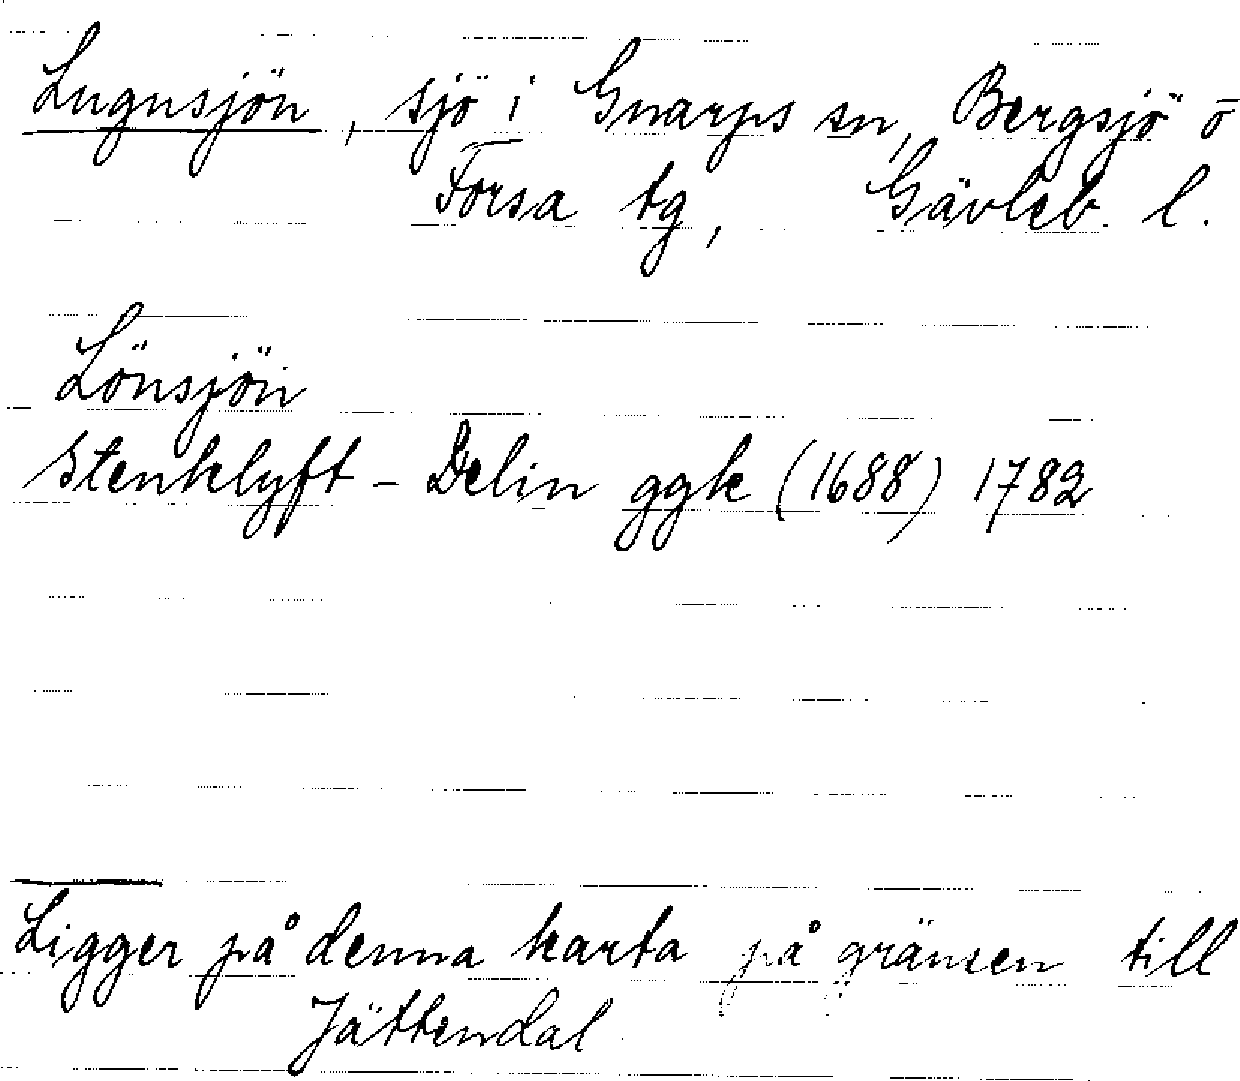 Lugnsjön, sjö i Gnarps sn, Bergsjö o
Forsa tg, Gävleb. l.
Lönsjön
Stenklyft - Delin ggk (1688) 1782
Ligger på denna karta på gränsen till
Jättendal